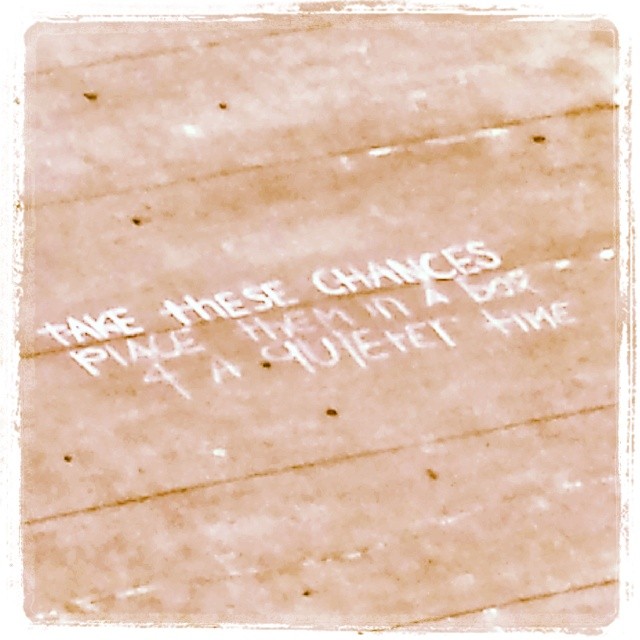 tAKE thESE CHANCES
PlACE thEM iN A bOX
4 A QUIEtEr tiME